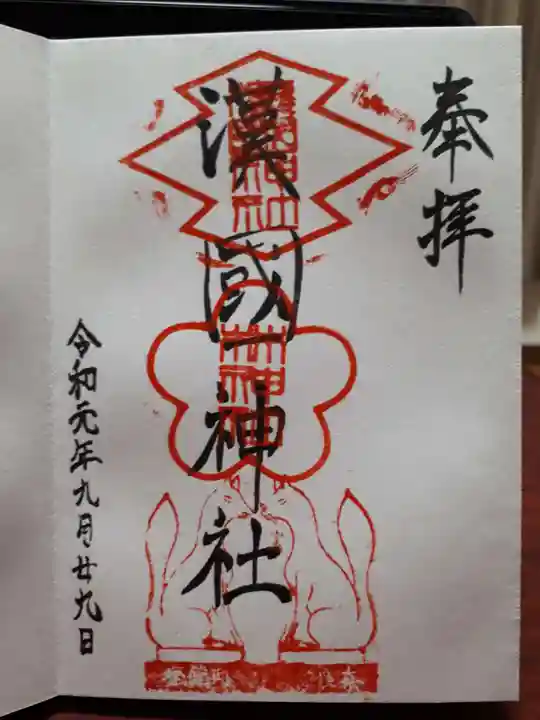 奉拝
漢國神社
令和元年九月廿九日
林神社